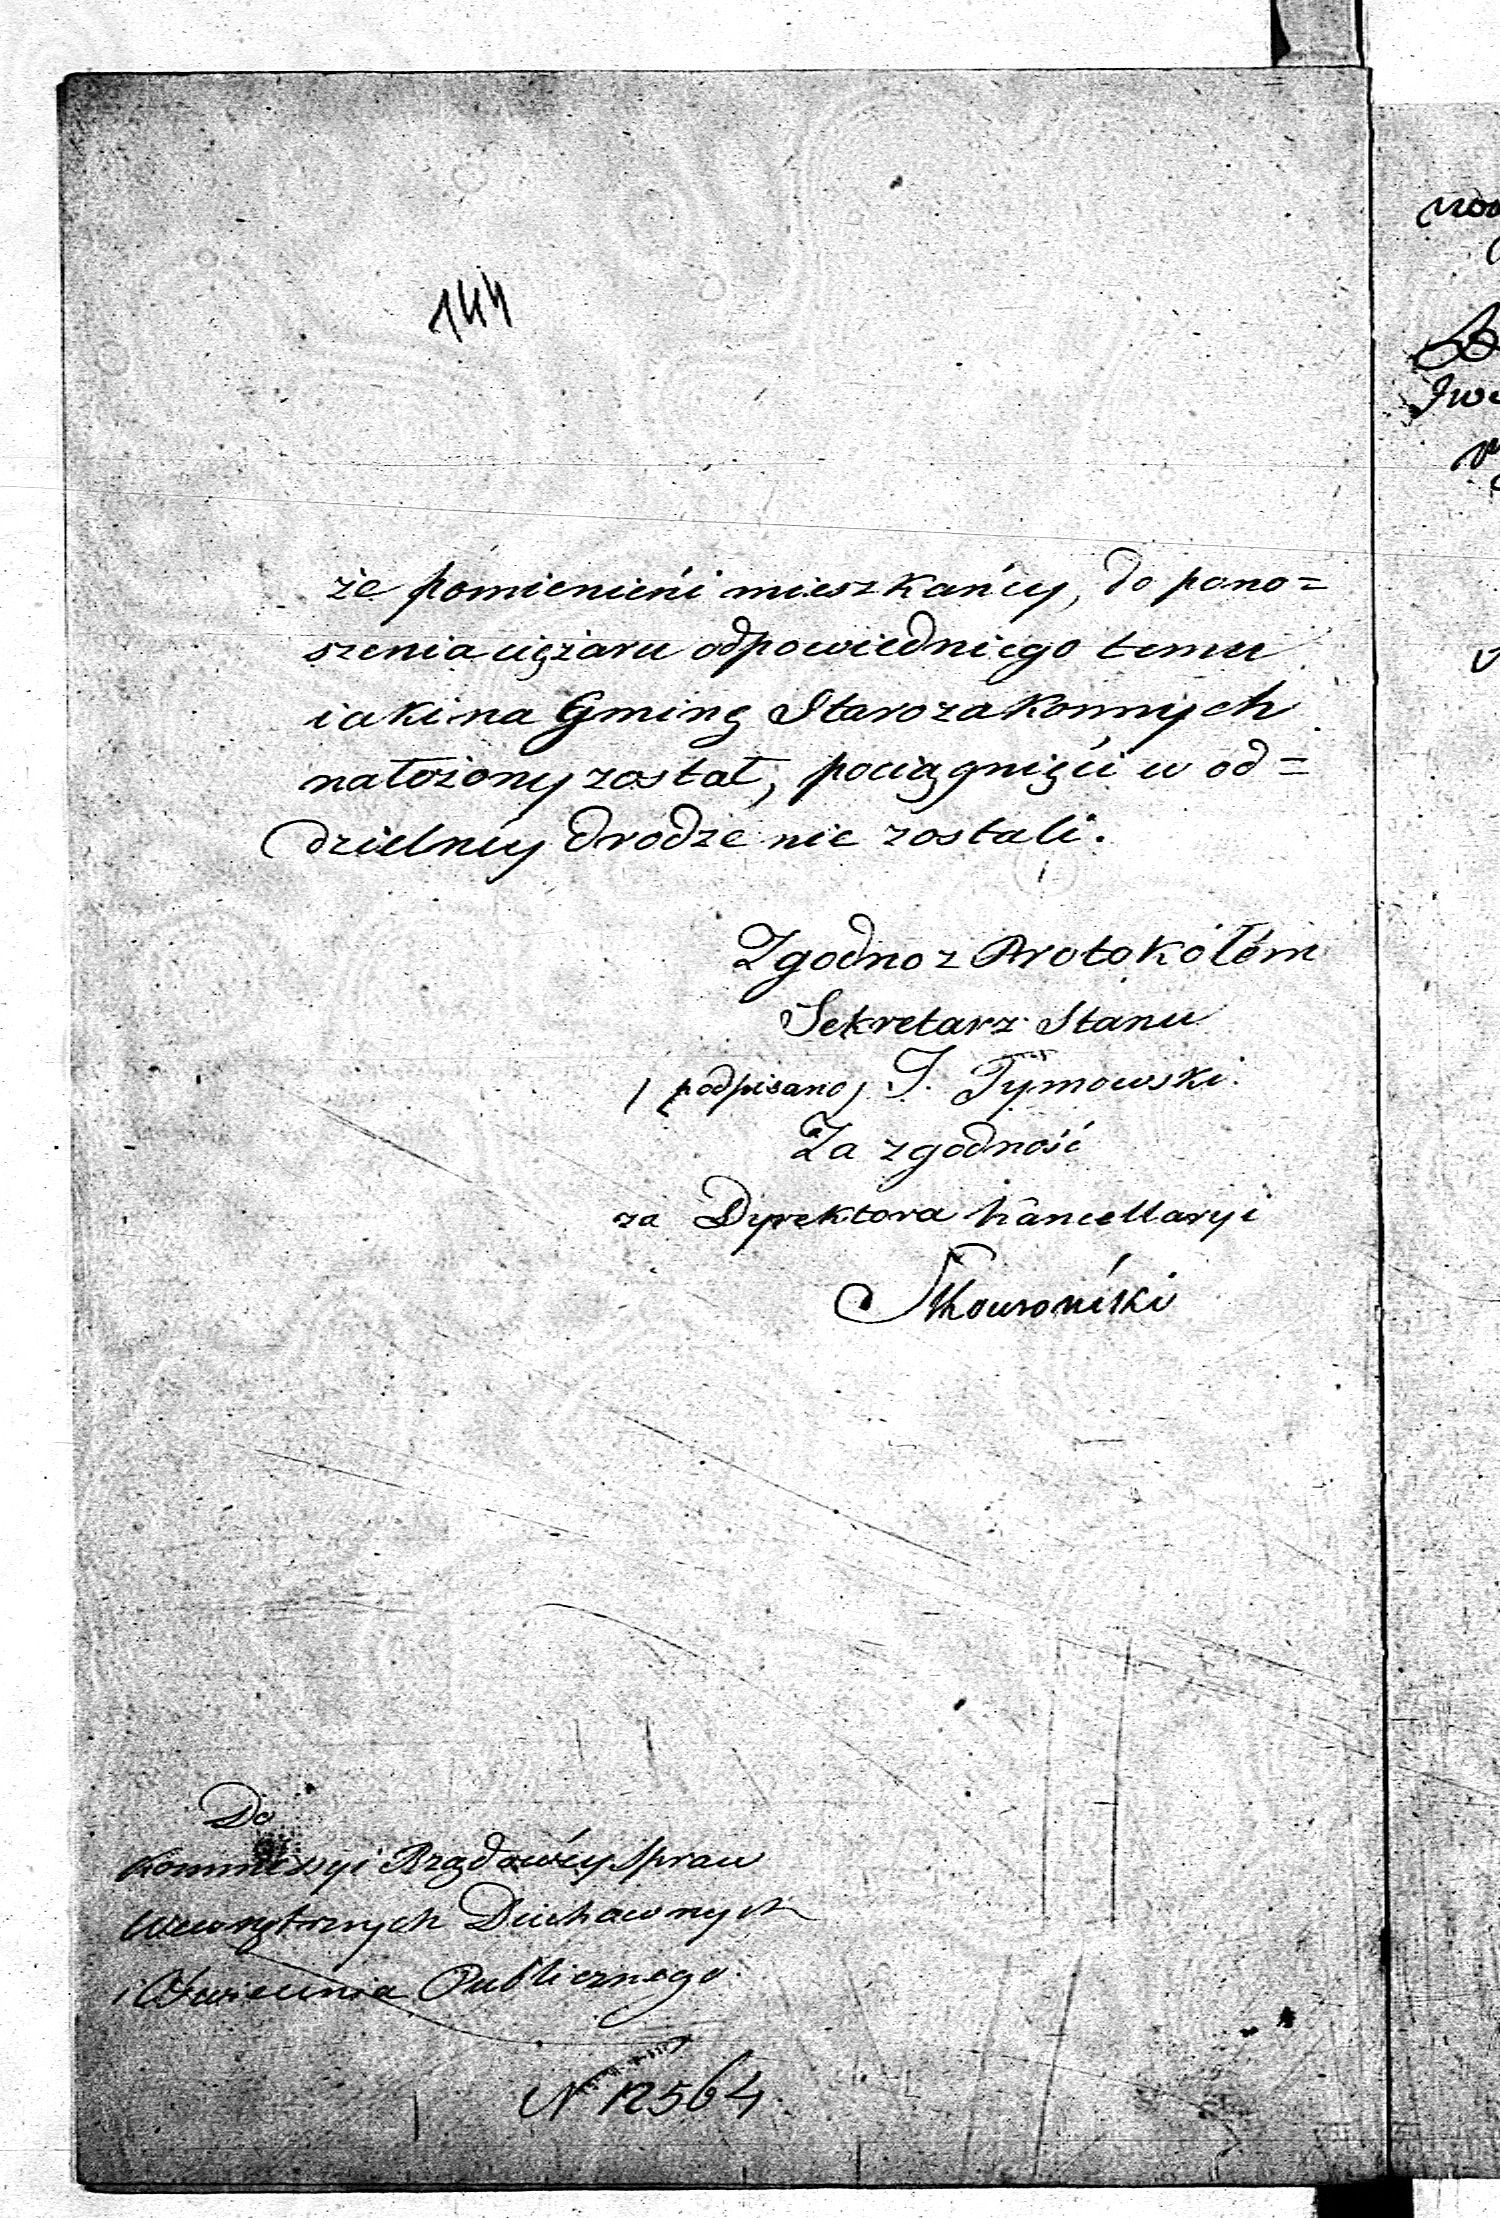 144
że pomienieni mieszkańcy, do pono=
szenia ciężaru odpowiedniego temu
iaki na Gminę Starozakonnych
nałożony został, pociągnięci w od=
dzielney drodze nie zostali.
Zgodno z Protokółem
Sekretarz Stanu
/ podpisano / J. Tymowski.
Za zgodność
za Dyrektora Kancellaryi
Skowroński
Do
Kommissyi Rządowéy Spraw
Wewnętrznych Duchownych
i Oświecenia Publicznego.
N 12564.